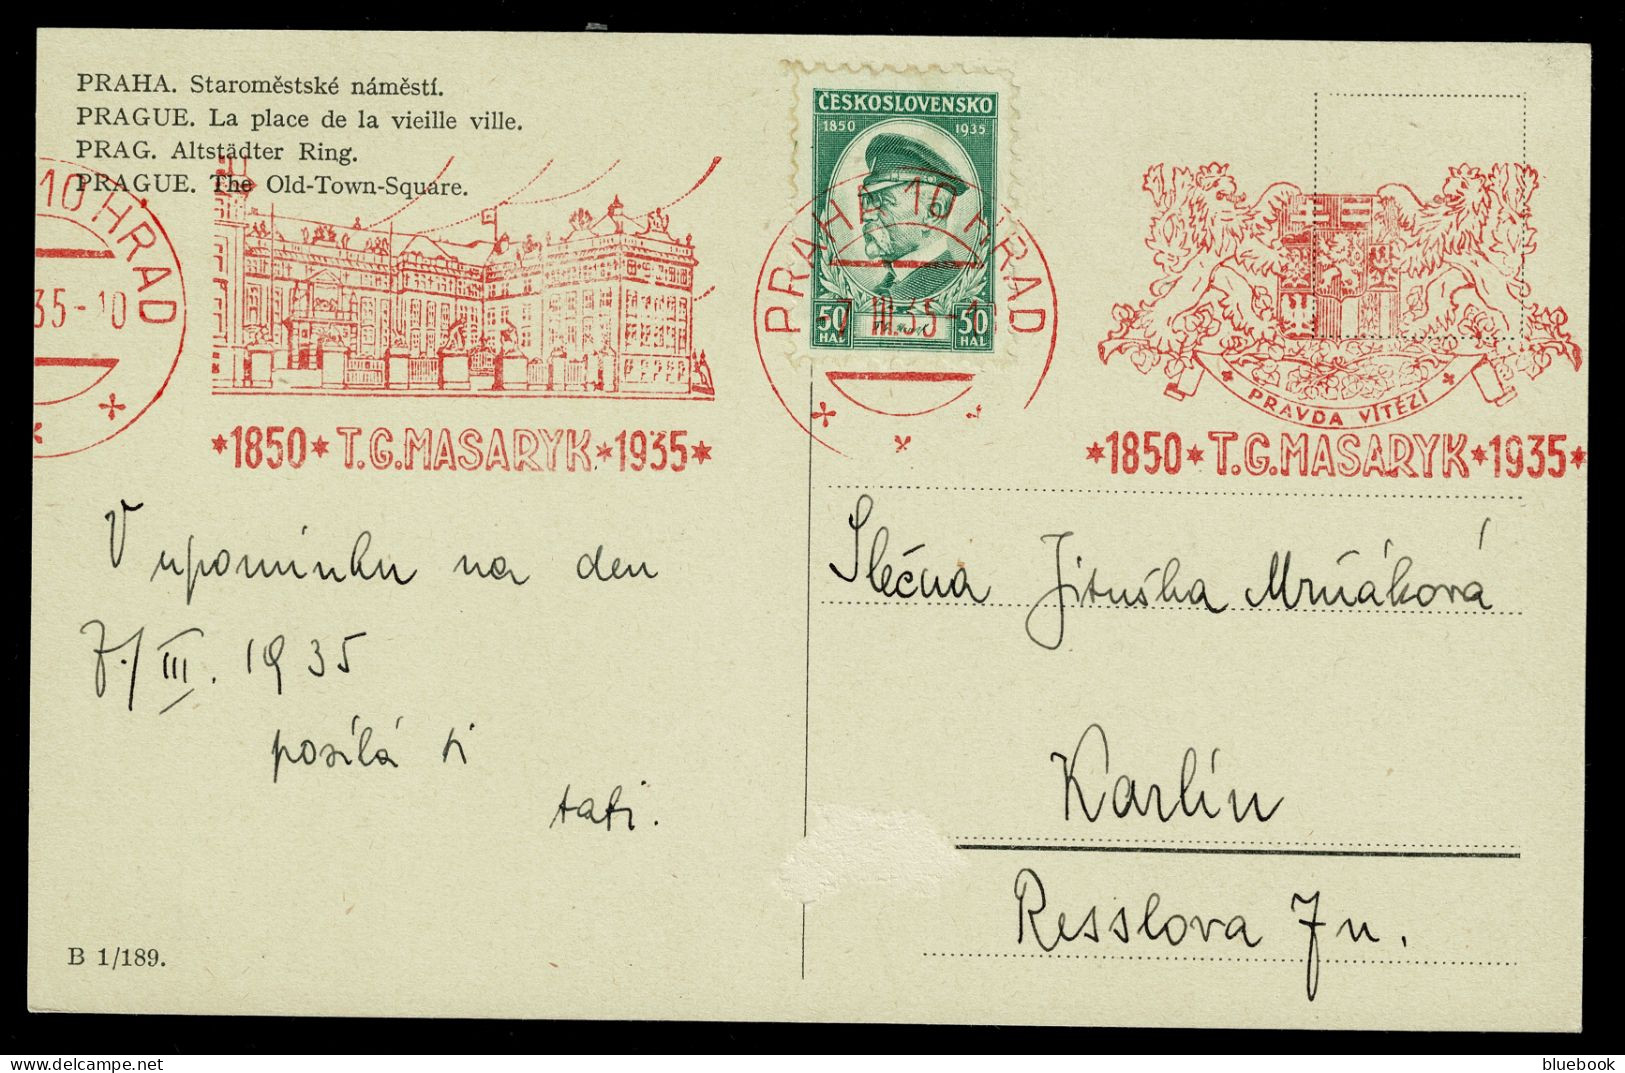 PRAHA. Staroměstské náměstí.
PRAGUE. La place de la vieille ville.
PRAG. Altstädter Ring.
PRAGUE. The Old-Town-Square.
10 HRAD
35-10
★1850★ T.G.MASARYK★1935★
ČESKOSLOVENSKO
1850 1935
50 HAL 50 HAL
PRAHA 10 HRAD
-7 III 35-1
PRAVDA VÍTĚZÍ
★1850★T.G.MASARYK★1935★
V upomínku na den
7./III. 1935
posílá ti
tati.
Slečna Jituška Mrňáková
Karlín
Resslova 7 n.
B 1/189.
bluebook